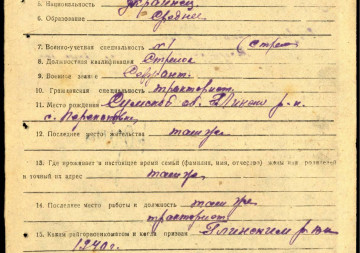 5. Национальность украинец
6. Образование среднее
7. Военно-учетная специальность №1 (Стрел
8. Должностная квалификация Стрелок
9. Военное звание Сержант.
10. Гражданская специальность тракторист.
11. Место рождения Сумской об. Глинско р-н
с.
12. Последнее место жительства там же
13. Где проживает в настоящее время семья (фамилия, имя, отчество) жены или родителей
и точный их адрес там же
14. Последнее место работы и должность там же
тракторист
15. Каким райгорвоенкоматом и когда призван Глинским р.в.к
1940 г.